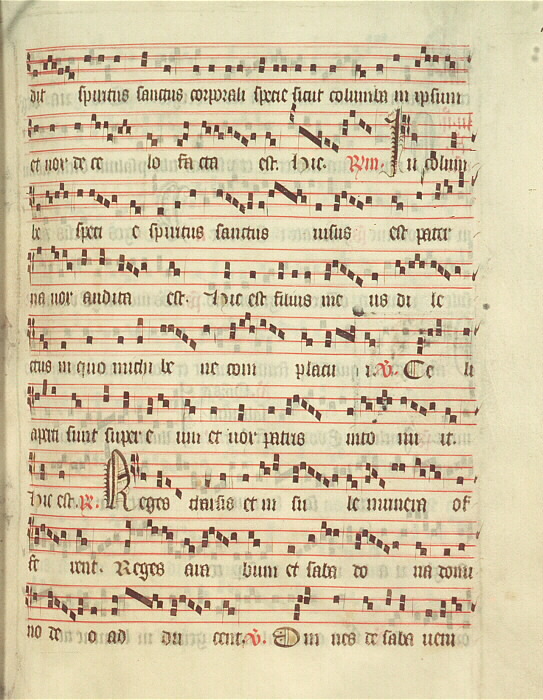 dit spiritus sanctus corporali specie sicut columba in ipsum
et vox de ce lo fa cta est. Hic. Rm. In colum
be speci e spiritus sanctus visus est pater
na vox audita est. Hic est filius me us di le
ctus in quo michi be ne com placu i. V. Ce li
aperti sunt super e um et vox patris into nu it.
Hic est. R. Reges tharsis et in su le munera of
fe rent. Reges ara bum et saba do na domi
no de o ad du cent. V. Om nes de saba veni